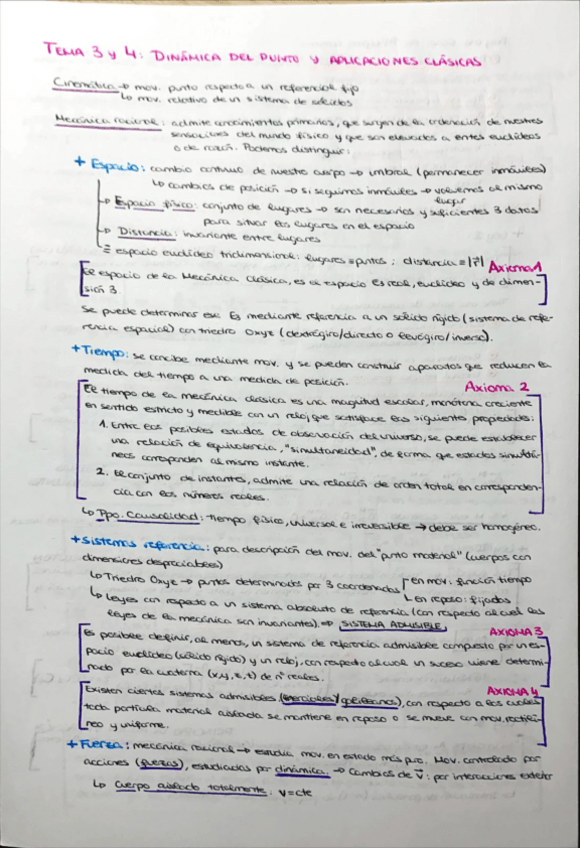 TEMA 3 y 4: DINÁMICA DEL PUNTO Y APLICACIONES CLÁSICAS
Cinemática → mov. punto respecto a un referencial fijo
↳ mov. relativo de un sistema de sólidos
Mecánica racional: admite conocimientos primarios, que surgen de la ordenación de nuestras
sensaciones del mundo físico y que son elevados a entes euclídeos
o de razón. Podemos distinguir:
+ Espacio: cambio continuo de nuestro cuerpo → umbral (permanecer inmóviles)
↳ cambios de posición → si seguimos inmóviles → volvemos al mismo
lugar
↳ Espacio físico: conjunto de lugares → son necesarios y suficientes 3 datos
para situar los lugares en el espacio
↳ Distancia: invariante entre lugares
≡ espacio euclídeo tridimensional: lugares = puntos ; distancia = |r⃗| Axioma 1
El espacio de la Mecánica Clásica, es el espacio Es real, euclídeo y de dimen-
sión 3.
Se puede determinar ese E3 mediante referencia a un sólido rígido (sistema de refe-
rencia espacial) con triedro Oxyz (dextrógiro/directo o levógiro/inverso).
+ Tiempo: se concibe mediante mov. y se pueden construir aparatos que reducen la
medida del tiempo a una medida de posición.
Axioma 2
El tiempo de la mecánica clásica es una magnitud escalar, monótona creciente
en sentido estricto y medible con un reloj, que satisface las siguientes propiedades:
1. Entre los posibles estados de observación del universo, se puede establecer
una relación de equivalencia, "simultaneidad", de forma que estados simultá-
neos corresponden al mismo instante.
2. El conjunto de instantes, admite una relación de orden total en corresponden-
cia con los números reales.
↳ Ppo. Causalidad: tiempo físico, universal e irreversible → debe ser homogéneo.
+ Sistemas referencia: para descripción del mov. del "punto material" (cuerpos con
dimensiones despreciables)
↳ Triedro Oxyz → puntos determinados por 3 coordenadas en mov: función tiempo
en reposo: fijadas
↳ Leyes con respecto a un sistema absoluto de referencia (con respecto al cual las
leyes de la mecánica son invariantes). ⇒ SISTEMA ADMISIBLE
AXIOMA 3
Es posible definir, al menos, un sistema de referencia admisible compuesto por un es-
pacio euclídeo (sólido rígido) y un reloj, con respecto al cual un suceso viene determi-
nado por la cuaterna (x,y,z,t) de nº reales.
AXIOMA 4
Existen ciertos sistemas admisibles (inerciales/galileanos), con respecto a los cuales
toda partícula material aislada se mantiene en reposo o se mueve con mov. rectilí-
neo y uniforme.
+ Fuerza: mecánica racional → estudia mov. en estado más puro. Mov. controlado por
acciones (fuerzas), estudiadas por dinámica. → Cambios de v⃗: por interacciones exterior
↳ Cuerpo aislado totalmente: v=cte